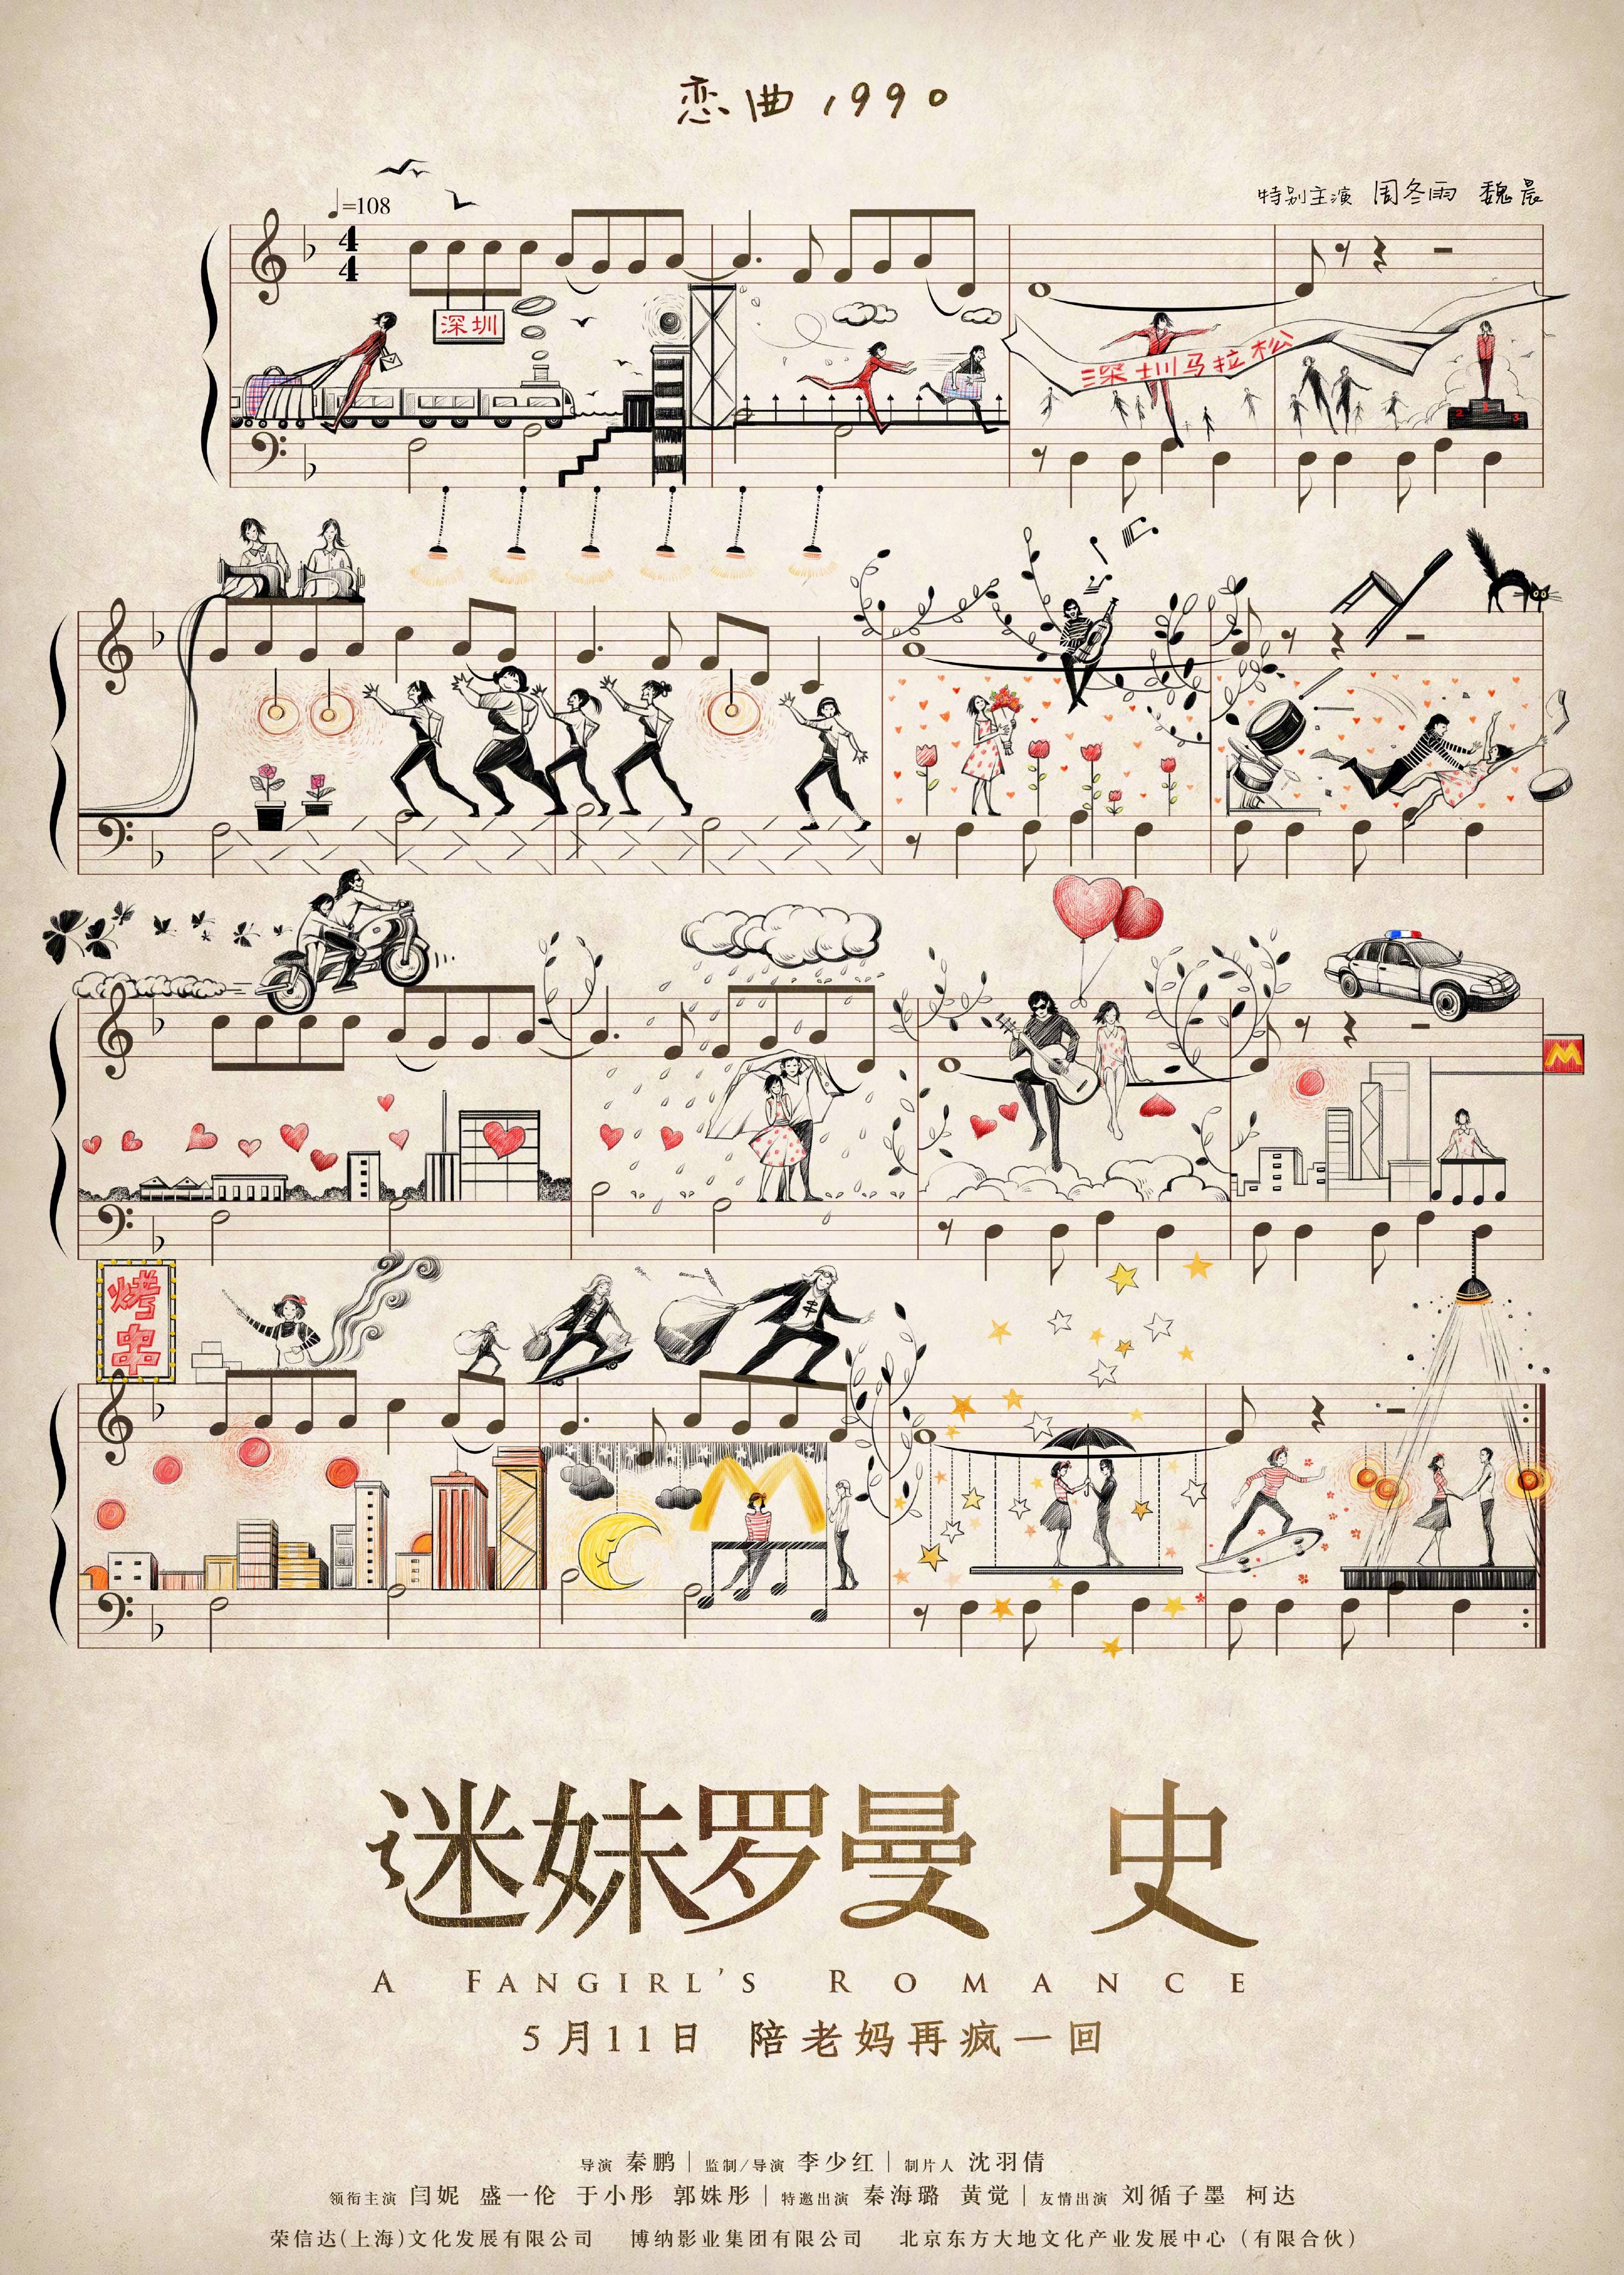 恋曲1990
特别主演 周冬雨 魏晨
=108
4
4
深圳
深圳马拉松
2 1 3
M
烤串
M
迷妹罗曼 史
A FANGIRL'S ROMANCE
5月11日 陪老妈再疯一回
导演 秦鹏 | 监制/导演 李少红 | 制片人 沈羽倩
领衔主演 闫妮 盛一伦 于小彤 郭姝彤 | 特邀出演 秦海璐 黄觉 | 友情出演 刘循子墨 柯达
荣信达(上海)文化发展有限公司 博纳影业集团有限公司 北京东方大地文化产业发展中心（有限合伙）